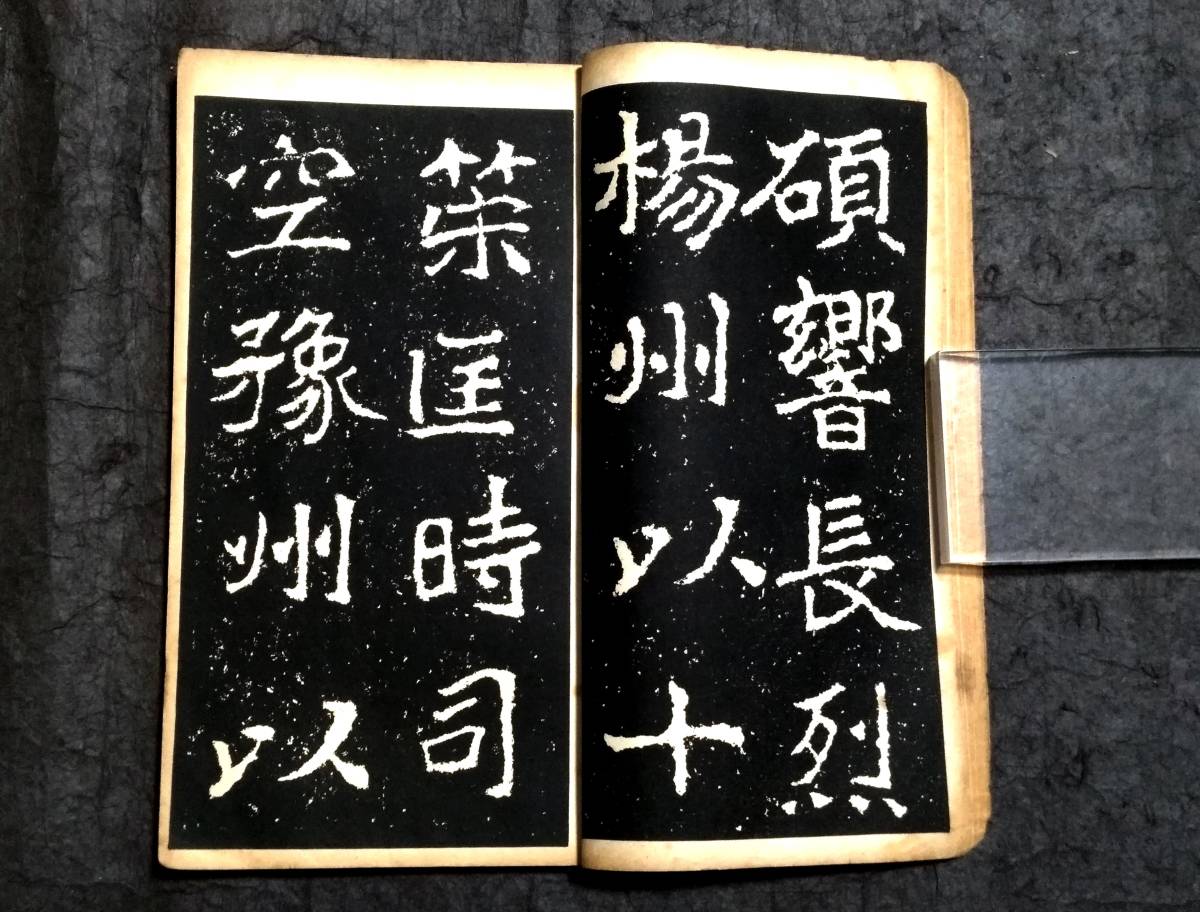 碩響長烈
楊州以十
策匡時司
空豫州以